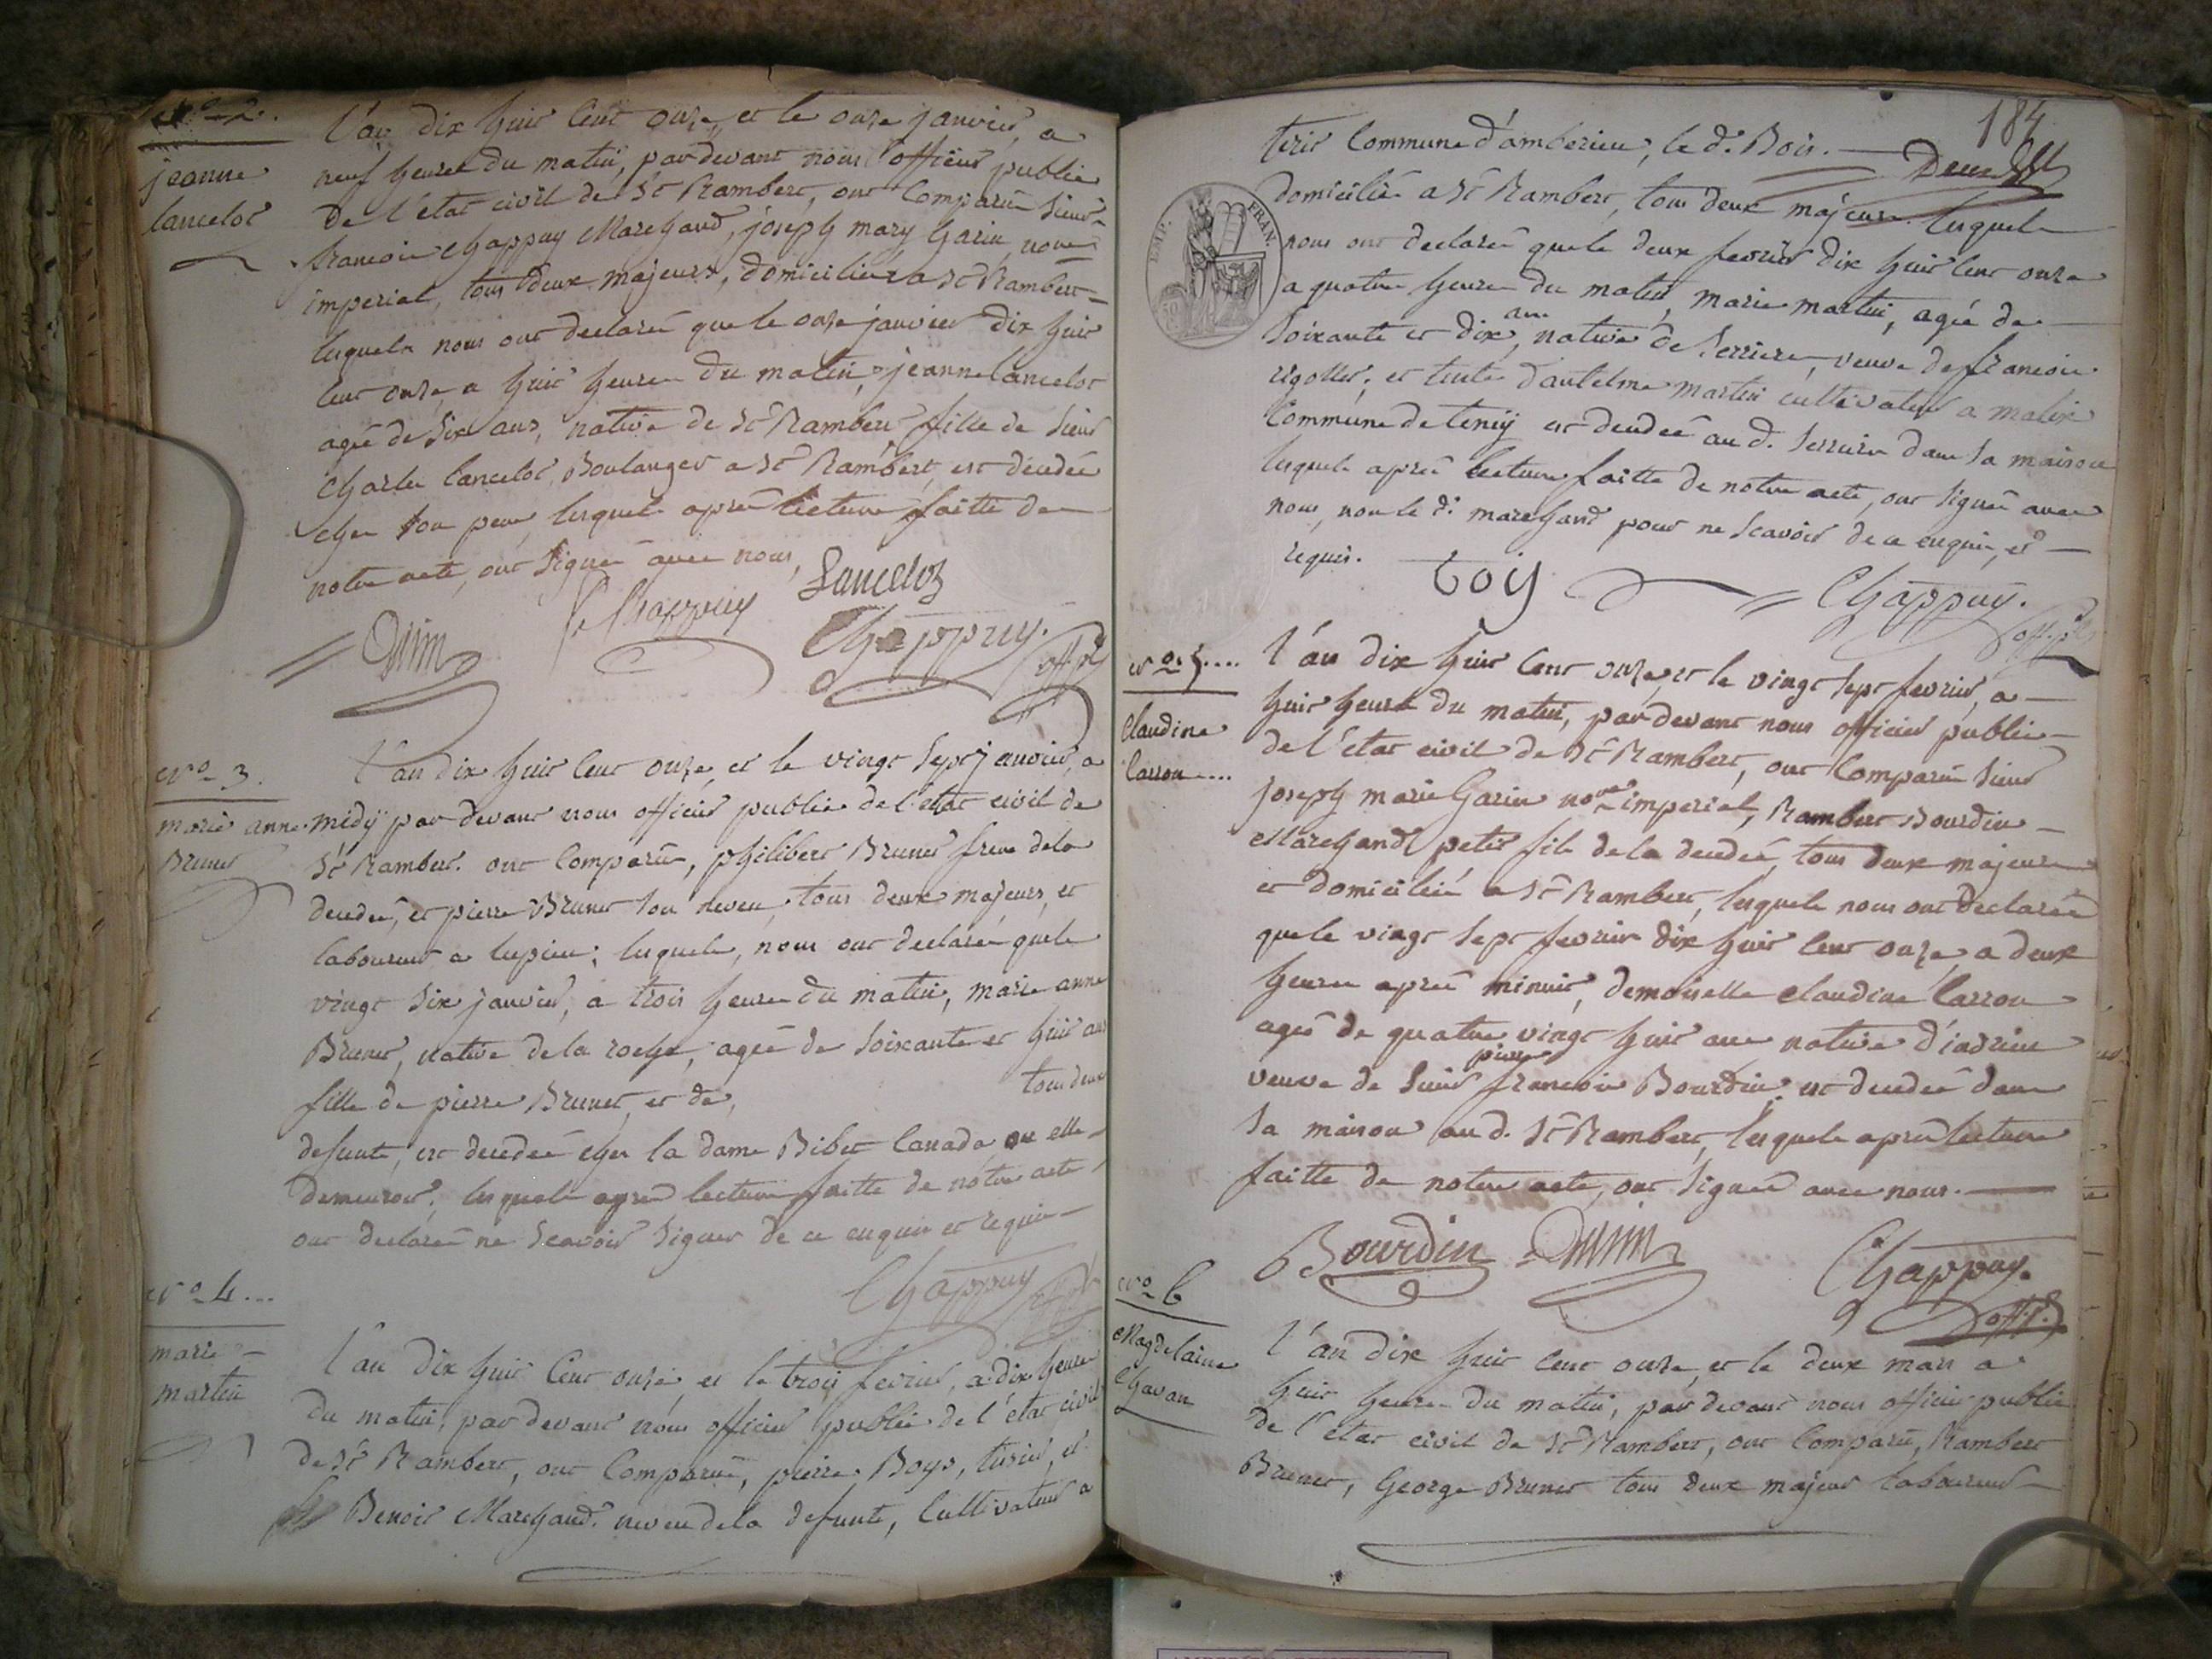 N.o 2.
jeanne
lancelot
L'an dix huit cent onze et le onze janvier, a
neuf heures du matin, pardevant nous officier public
de l'etat civil de St Rambert, ont comparu sieurs
francois chappuy Marchand, joseph mary Garin
imperial, tous deux majeurs, domiciliés a St Rambert
lesquels nous ont declaré que le onze janvier dix huit
cent onze a huit heures du matin, jeanne lancelot
agée de six ans, native de St Rambert fille de sieur
Charles lancelot, Boulanger a St Rambert, est decedée
chez son pere, lesquels après lecture faitte de
notre acte, ont signé avec nous,
Lancelot
Chappuy
Chappuy. off. p.
N.o 3.
marie anne
Brunet
L'an dix huit cent onze et le vingt sept janvier, a
midÿ par devant nous officier public de l'etat civil de
St Rambert. ont comparu, philibert Brunet frere de la
decedée, et pierre Brunet son neveu, tous deux majeurs, et
laboureurs a lupieu; lesquels, nous ont declaré que le
vingt six janvier, a trois heures du matin, marie anne
Brunet, native de la roche, agée de soixante et huit ans
fille de pierre Brunet, et de, tous deux
defunts, est decedée chez la dame Bibet Canada ou elle
demeuroit, lesquels après lecture faitte de notre acte,
ont declaré ne scavoir signer de ce enquis et requis
Chappuy off. p.
N.o 4...
marie
martin
L'an dix huit cent onze et le trois fevrier, a dix heures
du matin, par devant nous officier public de l'état civil
de St Rambert, ont comparu, pierre Boys, et
Benoit Marchand neveu de la defunte, cultivateur a
184
commune d'ambérieu, le d. Bois.
domicilié a St Rambert, tous deux majeurs. lesquels
EMP. FRAN.
nous ont declaré que le deux fevrier dix huit cent onze
a quatre heures du matin, marie martin, agée de
soixante et dix ans, native de Serrieres, veuve de francois
rigollet, et tante d'antelme martin cultivateur a malix
commune de tenÿ est decedée au d. Serriere dans sa maison
lesquels après lecture faitte de notre acte, ont signé avec
nous, non le d. marchand pour ne scavoir de ce enquis, et
requis.
Chappuy. off. p.
N.o 5....
Claudine
Carron....
L'an dix huit cent onze, et le vingt sept fevrier, a
huit heures du matin, par devant nous officier public
de l'etat civil de St Rambert, ont comparu sieurs
joseph marie Garin imperial, Rambert Bourdin
Marchand petit fils de la decedée, tous deux majeurs
et domiciliés a St Rambert, lesquels nous ont declaré
que le vingt sept fevrier dix huit cent onze, a deux
heures après minuit, demoiselle claudine Carron
agée de quatre vingt huit ans native d'indrieu
veuve de sieur pierre francois Bourdin est decedée dans
sa maison au d. St Rambert, lesquels après lecture
faitte de notre acte, ont signé avec nous.
Bourdin
Chappuy. off. p.
N.o 6
Magdelaine
Chavan
L'an dix huit cent onze, et le deux mars a
huit heures du matin, par devant nous officier public
de l'etat civil de St Rambert, ont comparu, Rambert
Brunet, George Brunet tous deux majeurs laboureurs